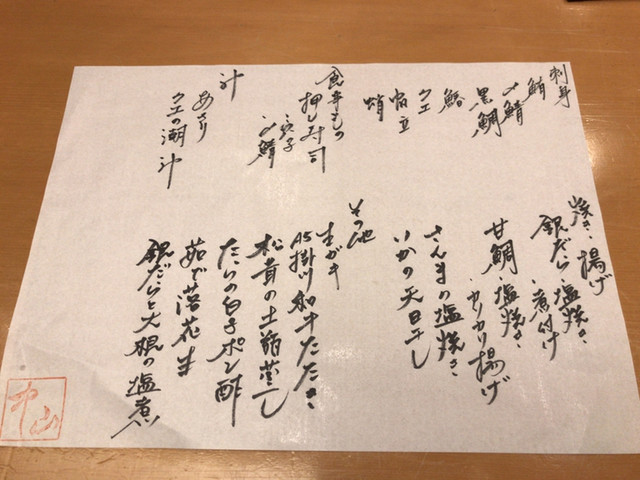 刺身
鮪
〆鯖
黒鯛
鰆
クエ
帆立
蛸
食事もの
押し寿司
穴子
〆鯖
汁
あさり
クエの潮汁
焼き・揚げ
銀だら・塩焼き
・煮付け
甘鯛・塩焼き
・カリカリ揚げ
さんまの塩焼き
いかの天日干し
その他
生がき
A5掛川和牛たたき
松茸の土瓶蒸し
たらの白子ポン酢
茹で落花生
銀だらと大根の塩煮
中山